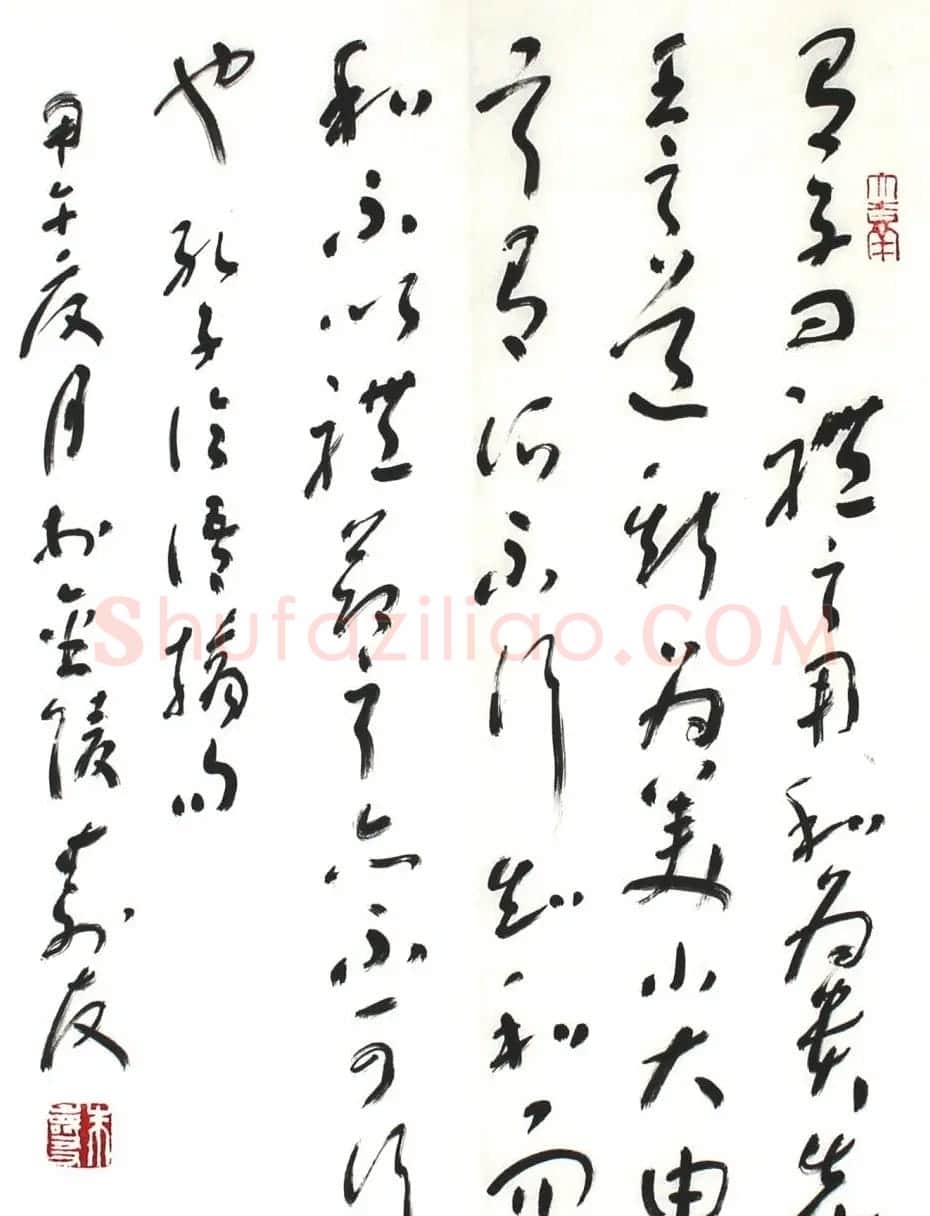 有子曰禮之用和為貴先
王之道斯為美小大由
之有所不行知和而
和不以禮節之亦不可行
也 孔子論語摘句
甲午夏月於金陵壽友
朱壽友
Shufaziliao.COM